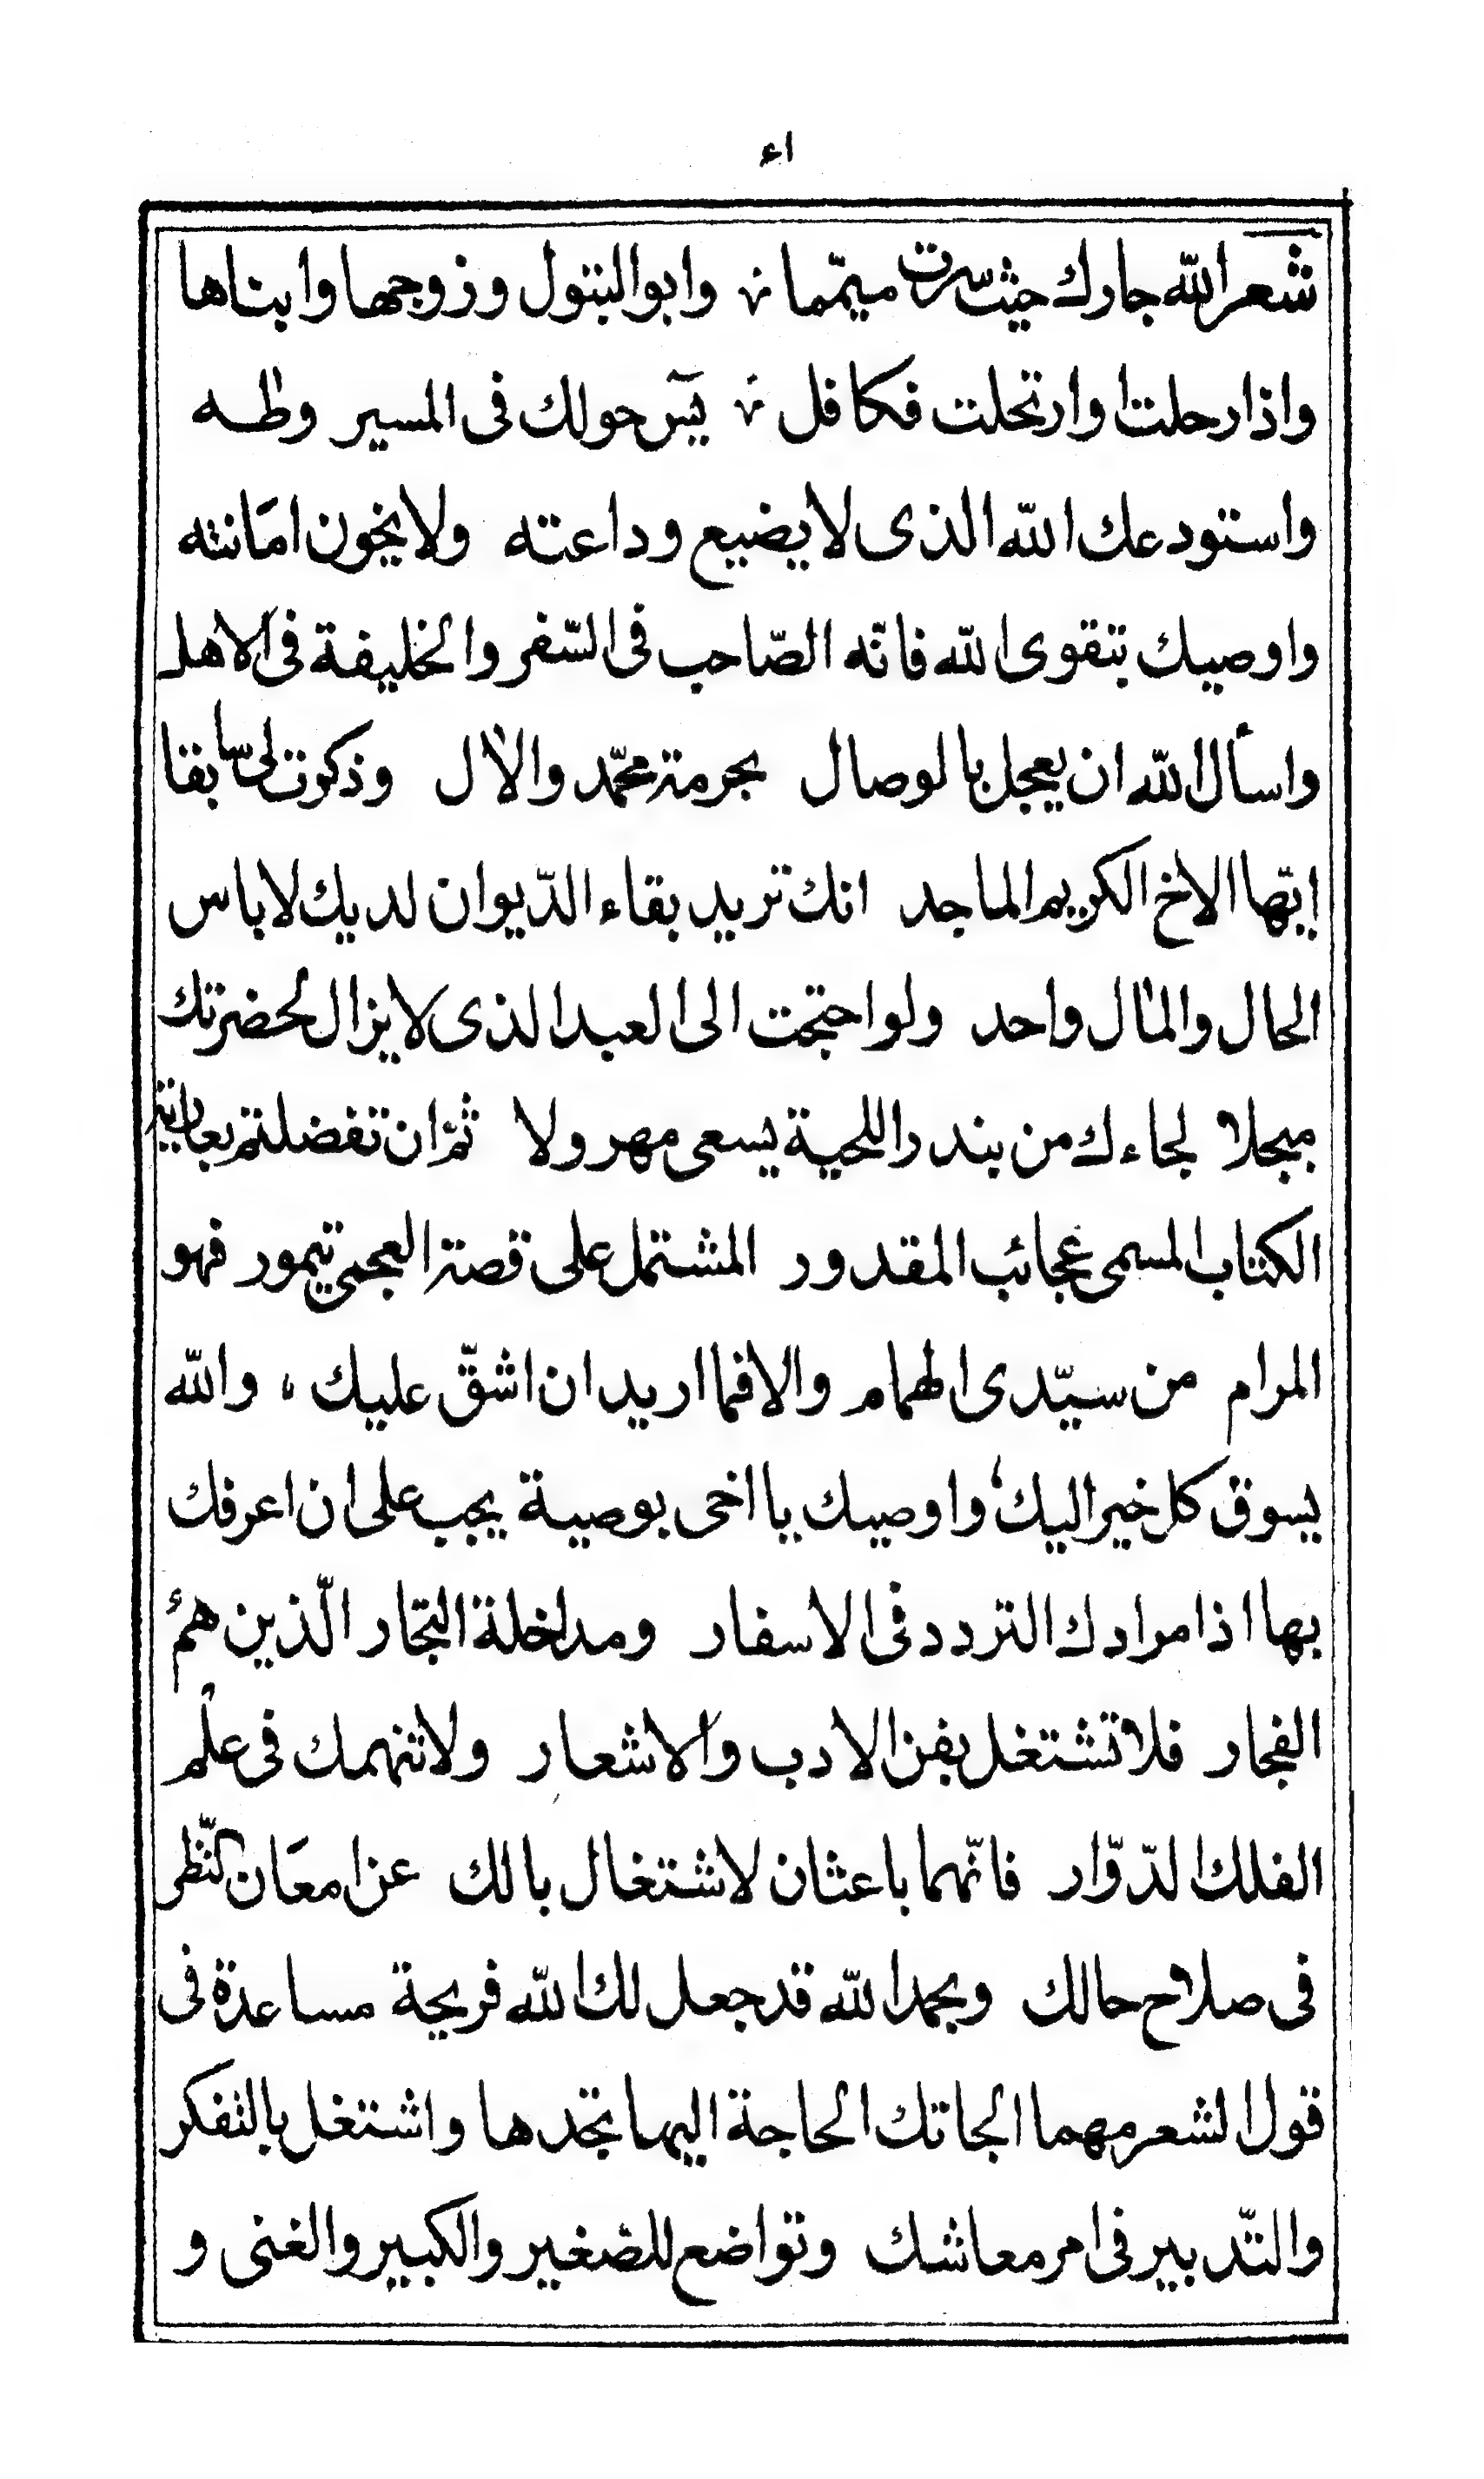 ٤١
شعر الله جارك حيث سرت ميمّما ؞ وابو البتول وزوجها وابناها
واذا رحلت وارتحلت فكافل ؞ يٓس حولك فى المسير وطٰه
واستودعك الله الذى لا يضيع وداعته ولا يخون امانته
واوصيك بتقوى الله فانّه الصّاحب فى السّفر والخليفة فى الاهل
واسأل الله ان يعجل بالوصال بحرمة محمّد والاٰل وذكرت لى سابقا
ايّها الاخ الكريم الماجد انك تريد بقاء الدّيوان لديك لاباس
الحال والمال واحد ولو احتجت الى العبد الذى لايزال لحضرتك
مبجلا لجاءك من بندر اللحية يسعى مهرولا ثمّ ان تفضلتم بعارية
الكتاب المسمى عجائب المقدور المشتمل على قصة العجمى تيمور فهو
المرام من سيّدى الهمام والا فما اريد ان اشقّ عليك ، والله
يسوق كل خير اليك ، واوصيك يا اخى بوصية يجب على ان اعرفك
بها اذا مرادك التردد فى الاسفار ومداخلة التجار الّذين هم
الفجار فلا تشتغل بفن الادب والاشعار ولا تنهمك فى علم
الفلك الدّوّار فانّهما باعثان لاشتغال بالك عن امعان النّظر
فى صلاح حالك وبحمد الله قد جعل لك الله قريحة مساعدة فى
قول الشعر مهما الجاتك الحاجة اليها تجدها واشتغل بالتفكر
والتّدبير فى امر معاشك وتواضع للصّغير والكبير والغنى و